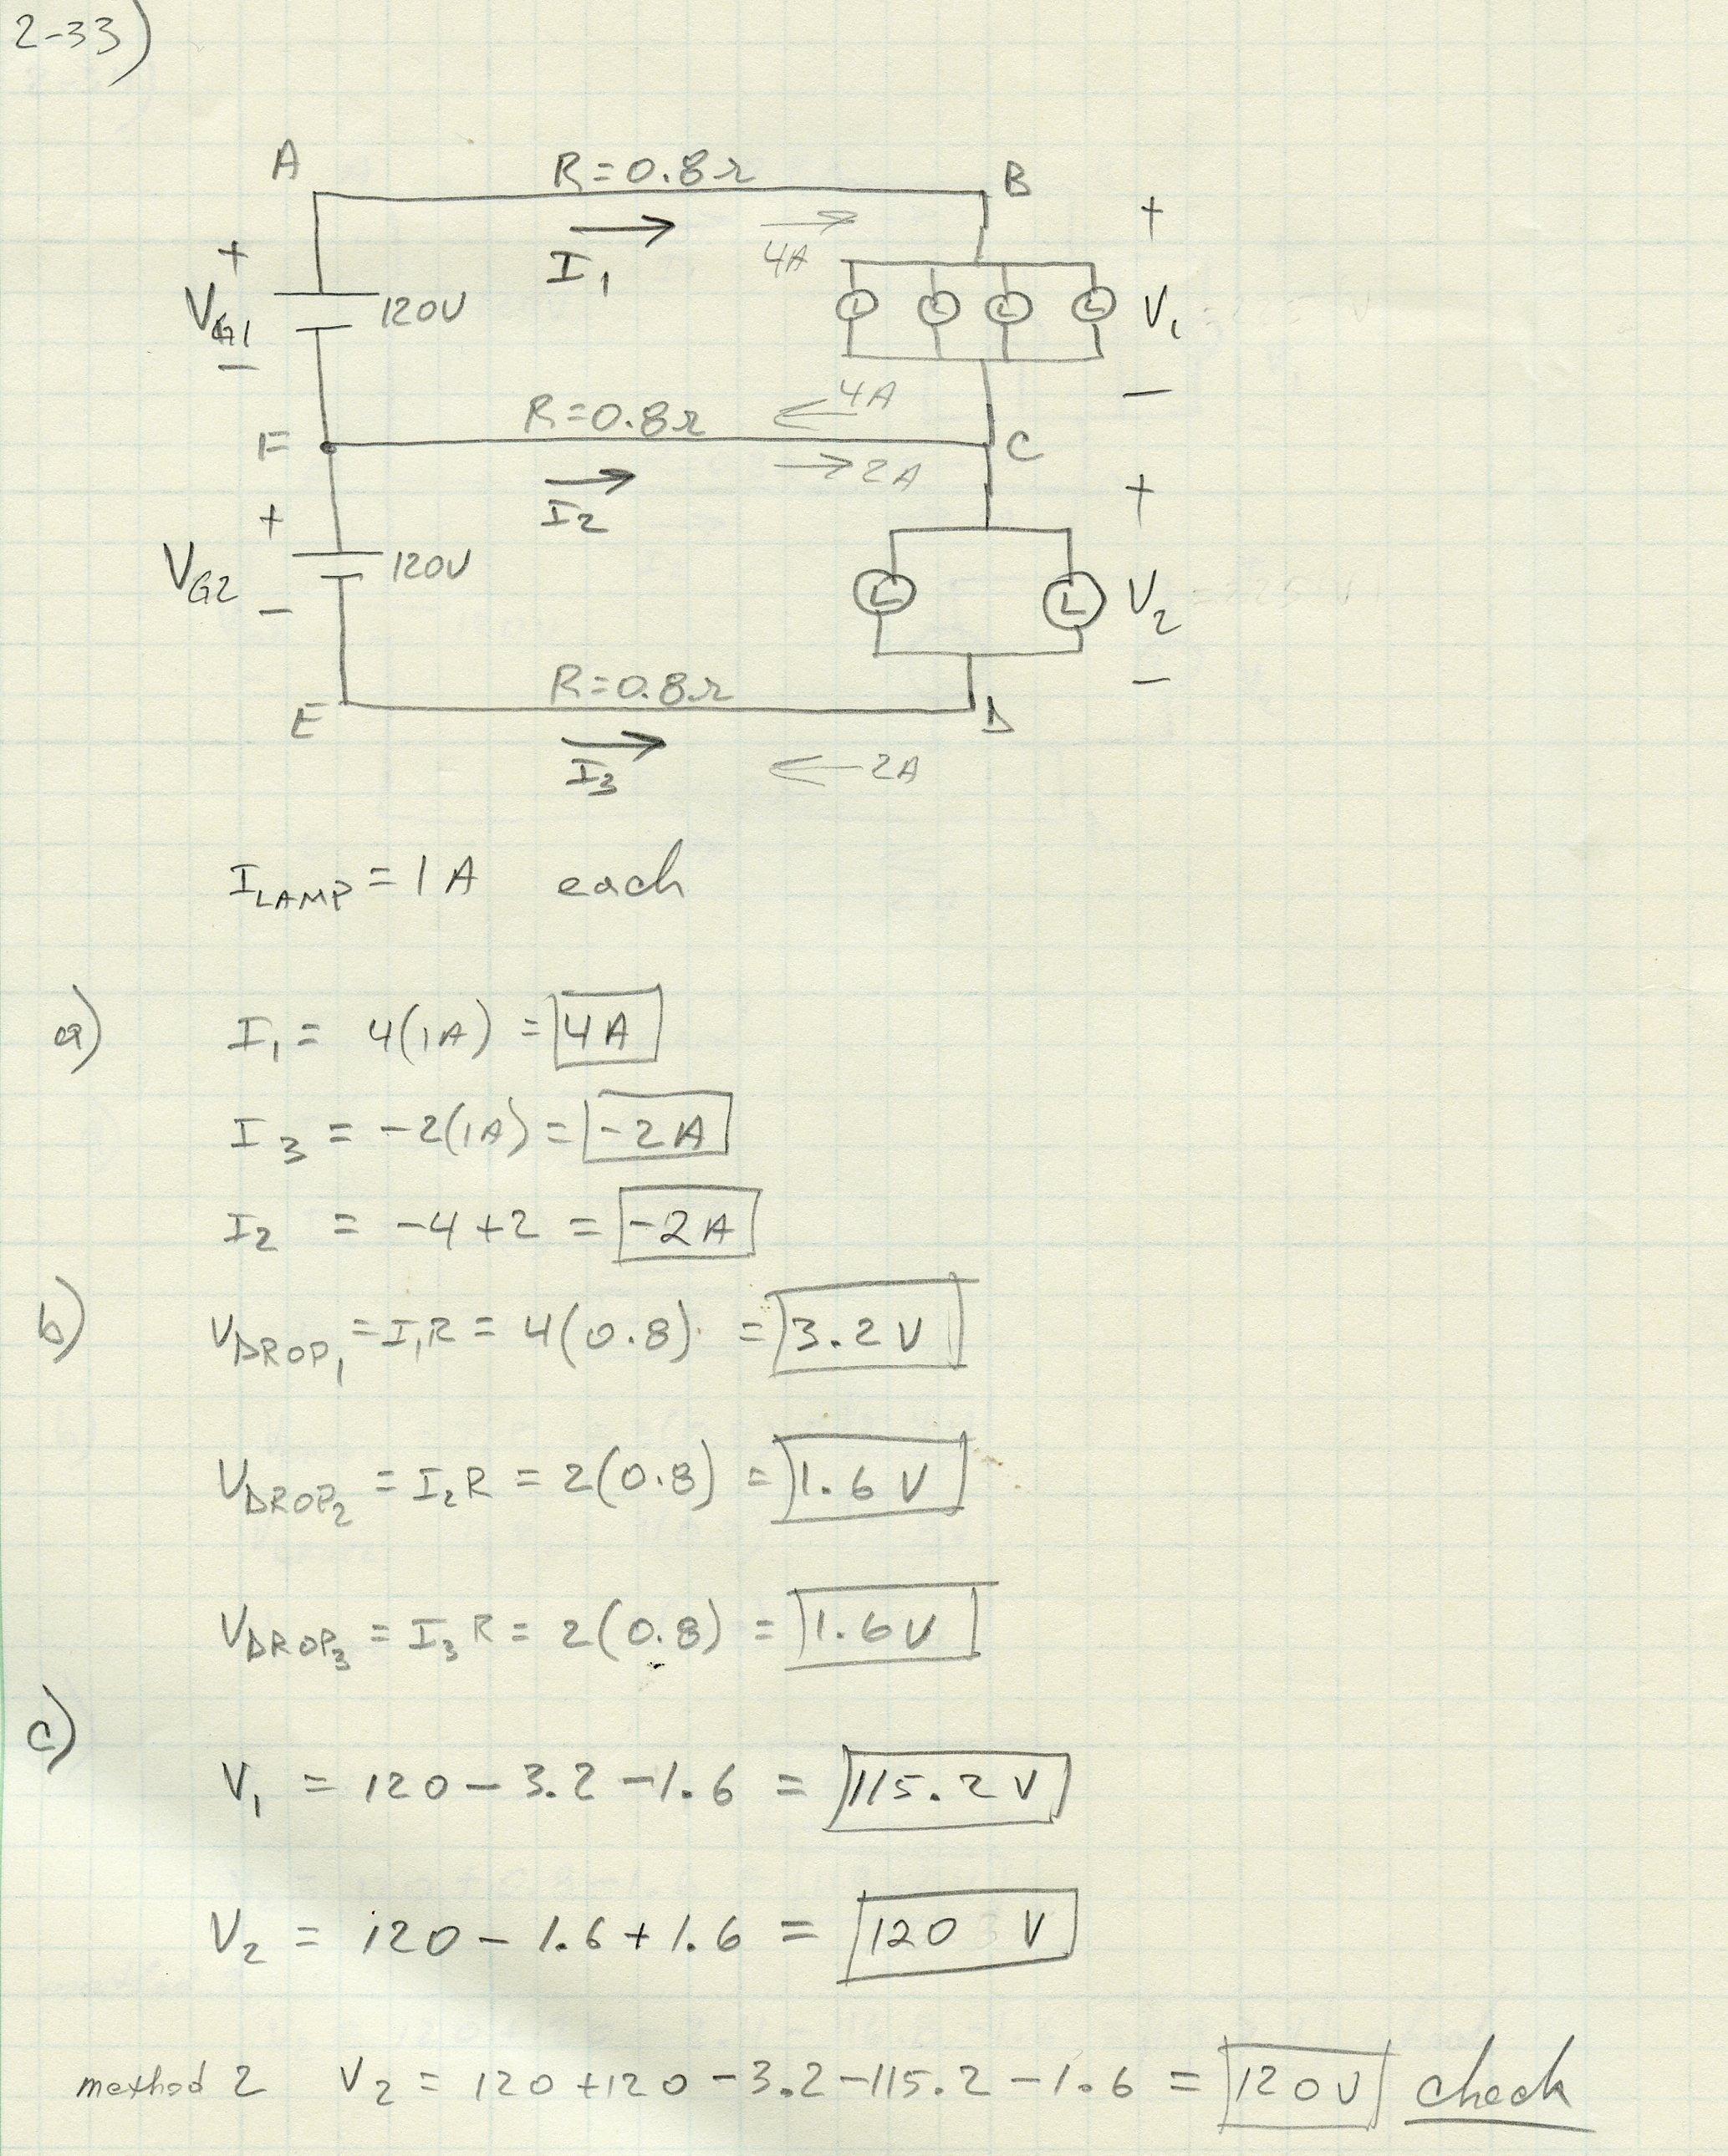 2-33)
A R=0.8Ω B
+ I1 4A +
VG1 120V L L L L V1
− 4A −
R=0.8Ω
F C
I2 2A
+ +
VG2 120V L L V2
− −
R=0.8Ω
E D
I3 2A
ILAMP = 1A each
a) I1 = 4(1A) = 4A
I3 = -2(1A) = -2A
I2 = -4+2 = -2A
b) VDROP1 = I1R = 4(0.8) = 3.2V
VDROP2 = I2R = 2(0.8) = 1.6V
VDROP3 = I3R = 2(0.8) = 1.6V
c)
V1 = 120 - 3.2 - 1.6 = 115.2V
V2 = 120 - 1.6 + 1.6 = 120 V
method 2 V2 = 120+120-3.2-115.2-1.6 = 120V check